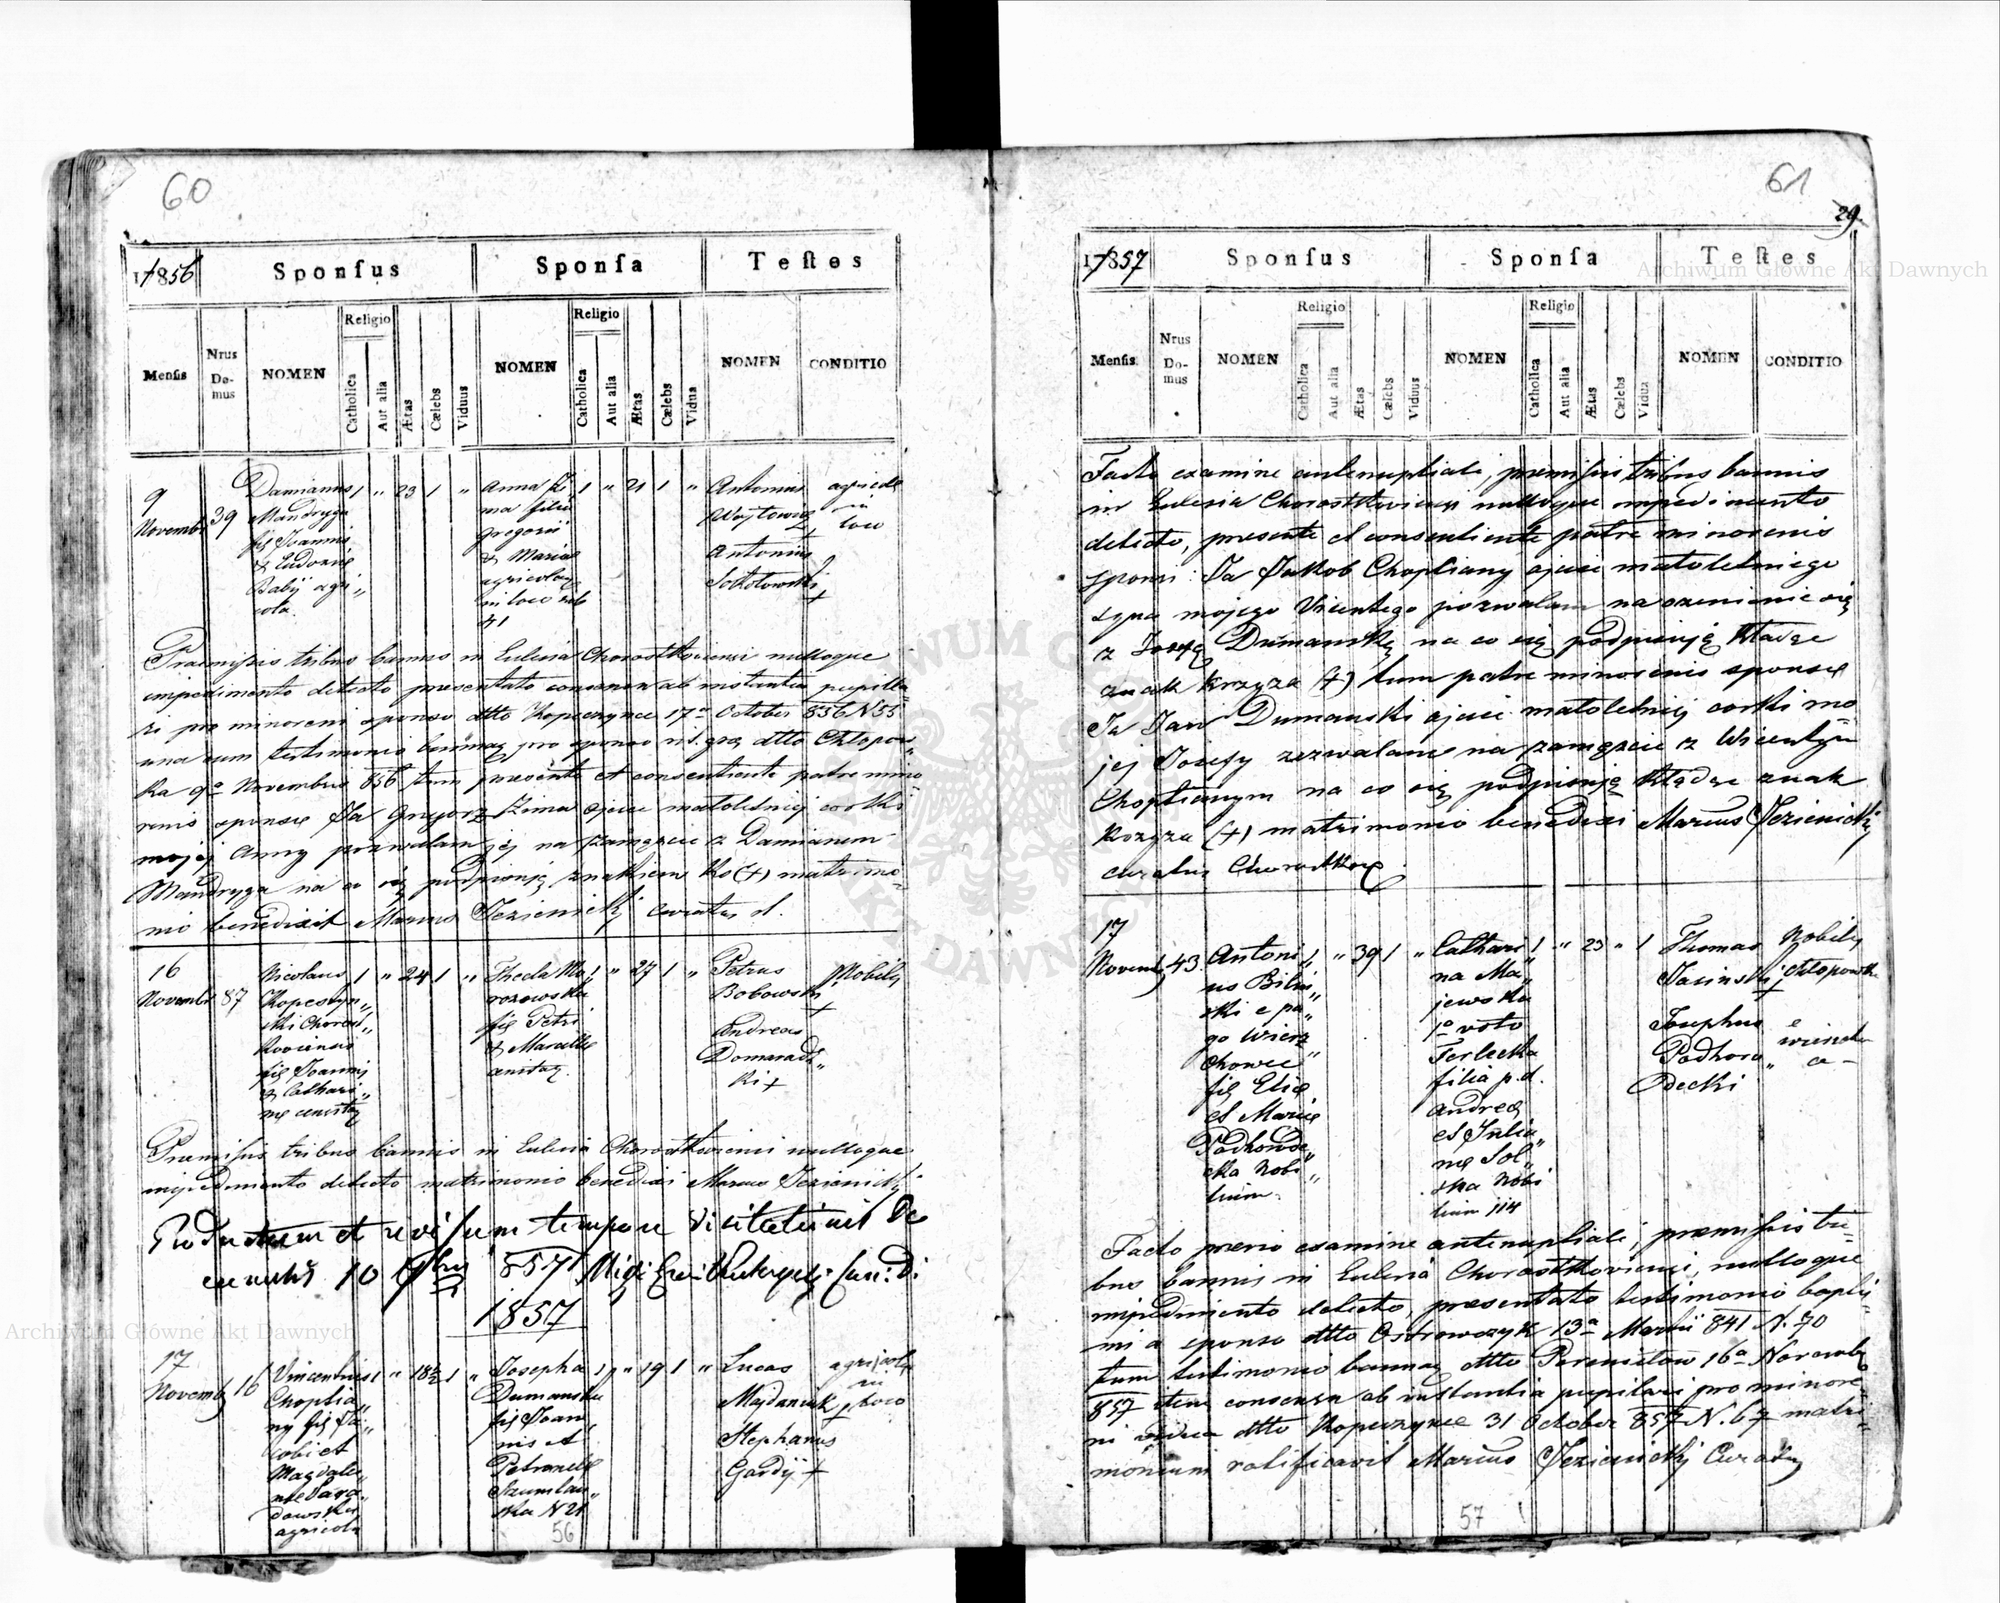 60
17856
Sponſus
Sponſa
Teſtes
Menſis
Nrus Do-mus
NOMEN
Religio
Catholica
Aut alia
Ætas
Cælebs
Viduus
NOMEN
Religio
Catholica
Aut alia
Ætas
Cælebs
Vidua
NOMEN
CONDITIO
9 Novembr
39
Damianus
Mandryga
fil Joannis
& Eudoxie
Babij agri„
cola.
1 „ 23 1 „
Anna Zi
ma filia
Gregorii
& Mariae
agricolar
in loco sub
41
1 „ 21 1 „
Antonius
Woytowicz
+
Antonius
Sokołowski
+
agricolae
in
loco
Praemissis tribus bannis in Ecclesia Chorostkoviensi nulloque
impedimento detecto presentato consensu ab instantia pupilla
ri pro minoreni sponso dtto Kopeczynce 17a October 856 N 55
una cum testimonio bannor pro sponso rit. gr. dtto Chłopow„
ka 9a Novembris 856 tum presente et consentiente patre mino
renis sponsae Ja Gregorz Zima ojciec małoletniej corki
mojej Anny pozwalam jej na zamęzcie z Damianem
Mandryga na co się podpisuję znakiem kr (+) matrimo„
nio benedixit Marcus Jezienicki curatus
16
Novembr
87
Nicolaus
Kopeczyn„
ski Chorost„
koviensis
fil Joannis
& Cathari„
nae
1 „ 24 1 „
Thecla Mo
rozowska
fil Petri
& Marcellae
1 „ 27 1 „
Petrus
Bobowski
+
Andreas
Domaradz„
ki +
Nobiles
Praemissis tribus bannis in Ecclesia Chorostkoviensi nulloque
impedimento detecto matrimonio benedixi Marcus Jezienicki
Productum et revisum tempore visitationis De
canalis 10 9bris 857
1857
17
Novemb
16
Vincentius
Choptia„
ny fil Ja„
cobi et
Magdale„
nae
dowska
agricola
1 „ 18½ 1 „
Josepha
Dumanska
fil Joan„
nis et
Petronelle
Szumlan„
ska N 21
1 „ 19 1 „
Lucas
Majdaniuk
+
Stephanus
Gardij +
agricolae
in
loco
56
61
29
17857
Sponſus
Sponſa
Teſtes
Menſis
Nrus Do-mus
NOMEN
Religio
Catholica
Aut alia
Ætas
Cælebs
Viduus
NOMEN
Religio
Catholica
Aut alia
Ætas
Cælebs
Vidua
NOMEN
CONDITIO
Facto examine antenuptiali, premissis tribus bannis
in Ecclesia Chorostkoviensi nulloque impedimento
detecto, presente et consentiente patre minorenis
sponsi: Ja Jakob Choptiany ojciec małoletniego
syna mojego Vicentego pozwalam na ozenienie się
z Jozefą Dumanską na co się podpisuję kładąc
znak krzyza (+) tum patre minorenis sponsae
Ja Jan Dumanski ojciec małoletniej corki mo
jej Jozefy zezwalam na zamęzcie z Wicentym
Choptianym na co się podpisuję kładąc znak
krzyza (+) matrimonio benedixi Marcus Jezienicki
curatus Chorostkow
17
Novemb
43
Antoni„
us Bilin„
ski e pa„
go Wierz
chowce „
fil Eliae
et Mariae
Podhorode„
cka Nobi„
lium.
1 „ 39 1 „
Cathari
na Ma„
jewska
1o voto
Terlecka
filia p.d.
Andreae
et Julia„
nae Sol„
ska Nobi
lium
1 „ 23 „ 1
Thomas
Jasinski
+
Josephus
Podhoro„
decki
Nobiles
Chłopowka
e
Facto previo examine antenuptiali, premissis tri„
bus bannis in Ecclesia Chorostkoviensi, nulloque
impedimento detecto, presentato testimonio baptis„
mi a sponso dtto Ostrowczyk 13a Martii 841 N. 70
tum testimonio bannor dtto Peremiłow 16a Novemb
857 item consensu ab instantia pupilari pro minore„
ni vidua dtto Kopeczynce 31 October 857 N. 67 matri„
monium ratificavit Marcus Jezienicki Curatus
57
Archiwum Główne Akt Dawnych
Archiwum Główne Akt Dawnych
ARCHIWUM GŁÓWNE AKT DAWNYCH